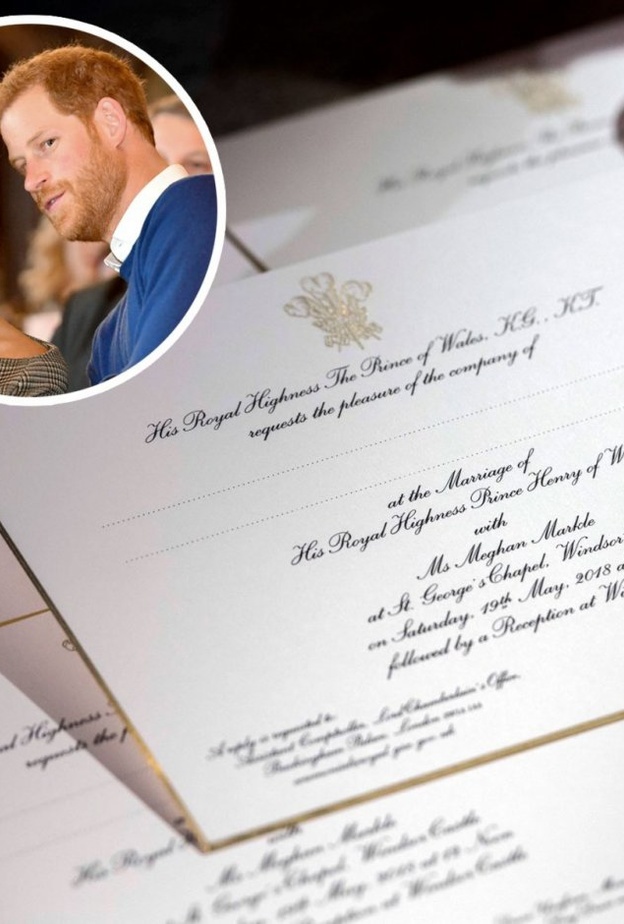 His Royal Highness The Prince of Wales, K.G., K.T.
requests the pleasure of the company of
at the Marriage of
His Royal Highness Prince Henry of W
with
Ms Meghan Markle
at St. George's Chapel, Windsor
on Saturday, 19th May, 2018 a
followed by a Reception at Wi
A reply is requested to:
Assistant Comptroller, Lord Chamberlain's Office,
Buckingham Palace, London
al Highness
requests the p
His Royal H
with
Ms Meghan Markle
St. George's Chapel, Windsor Castle
19th May, 2018 at 12 Noon
Reception at Windsor Castle